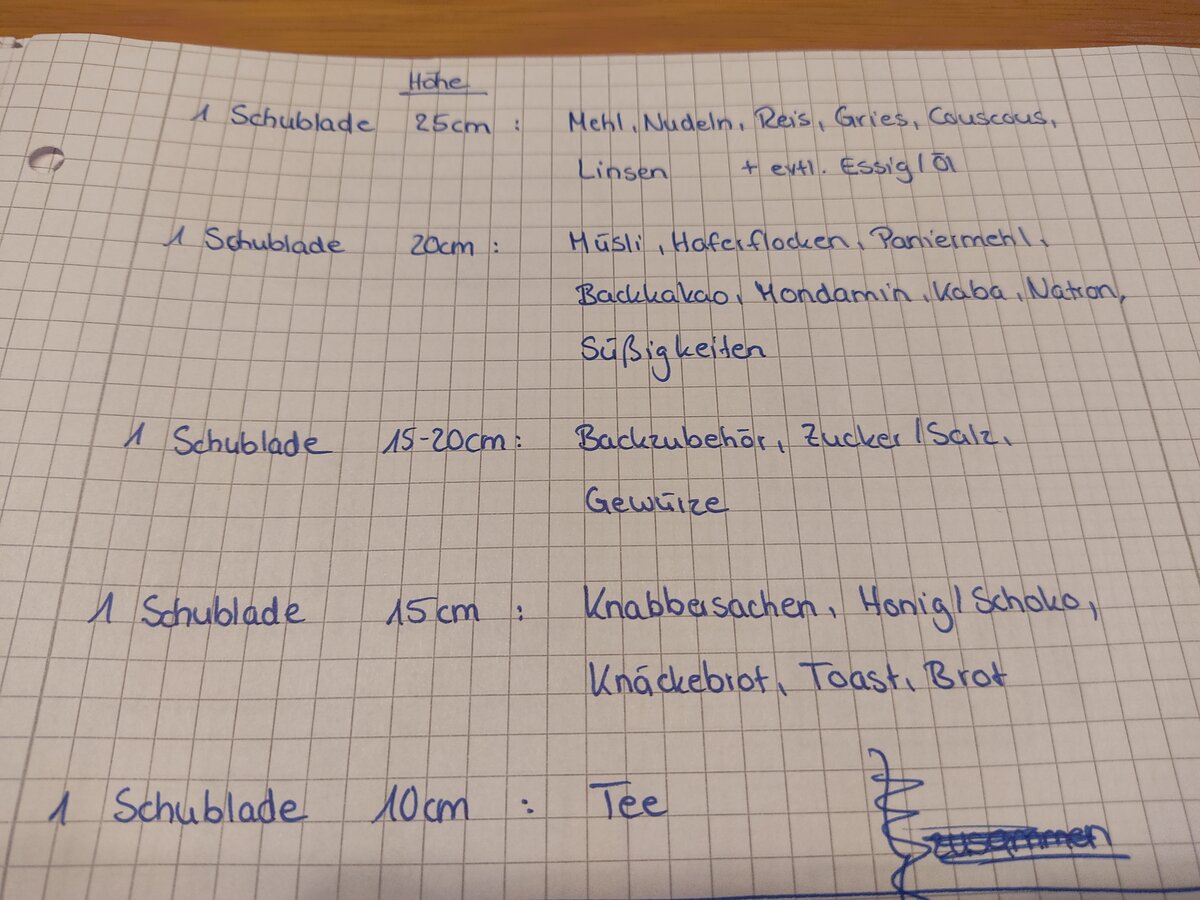 Höhe
1 Schublade 25cm : Mehl, Nudeln, Reis, Gries, Couscous,
Linsen + evtl. Essig/Öl
1 Schublade 20cm : Müsli, Haferflocken, Paniermehl,
Backkakao, Mondamin, Kaba, Natron,
Süßigkeiten
1 Schublade 15-20cm : Backzubehör, Zucker/Salz,
Gewürze
1 Schublade 15cm : Knabbersachen, Honig/Schoko,
Knäckebrot, Toast, Brot
1 Schublade 10cm : Tee
zusammen